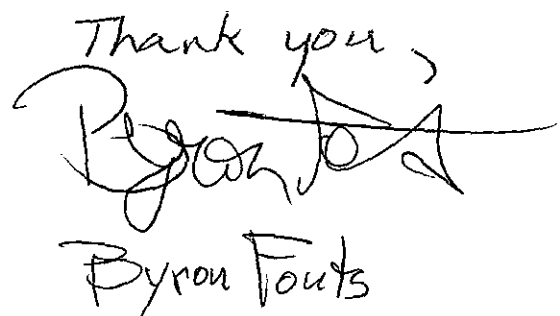 Thank you,
Byron Fouts
Byron Fouts